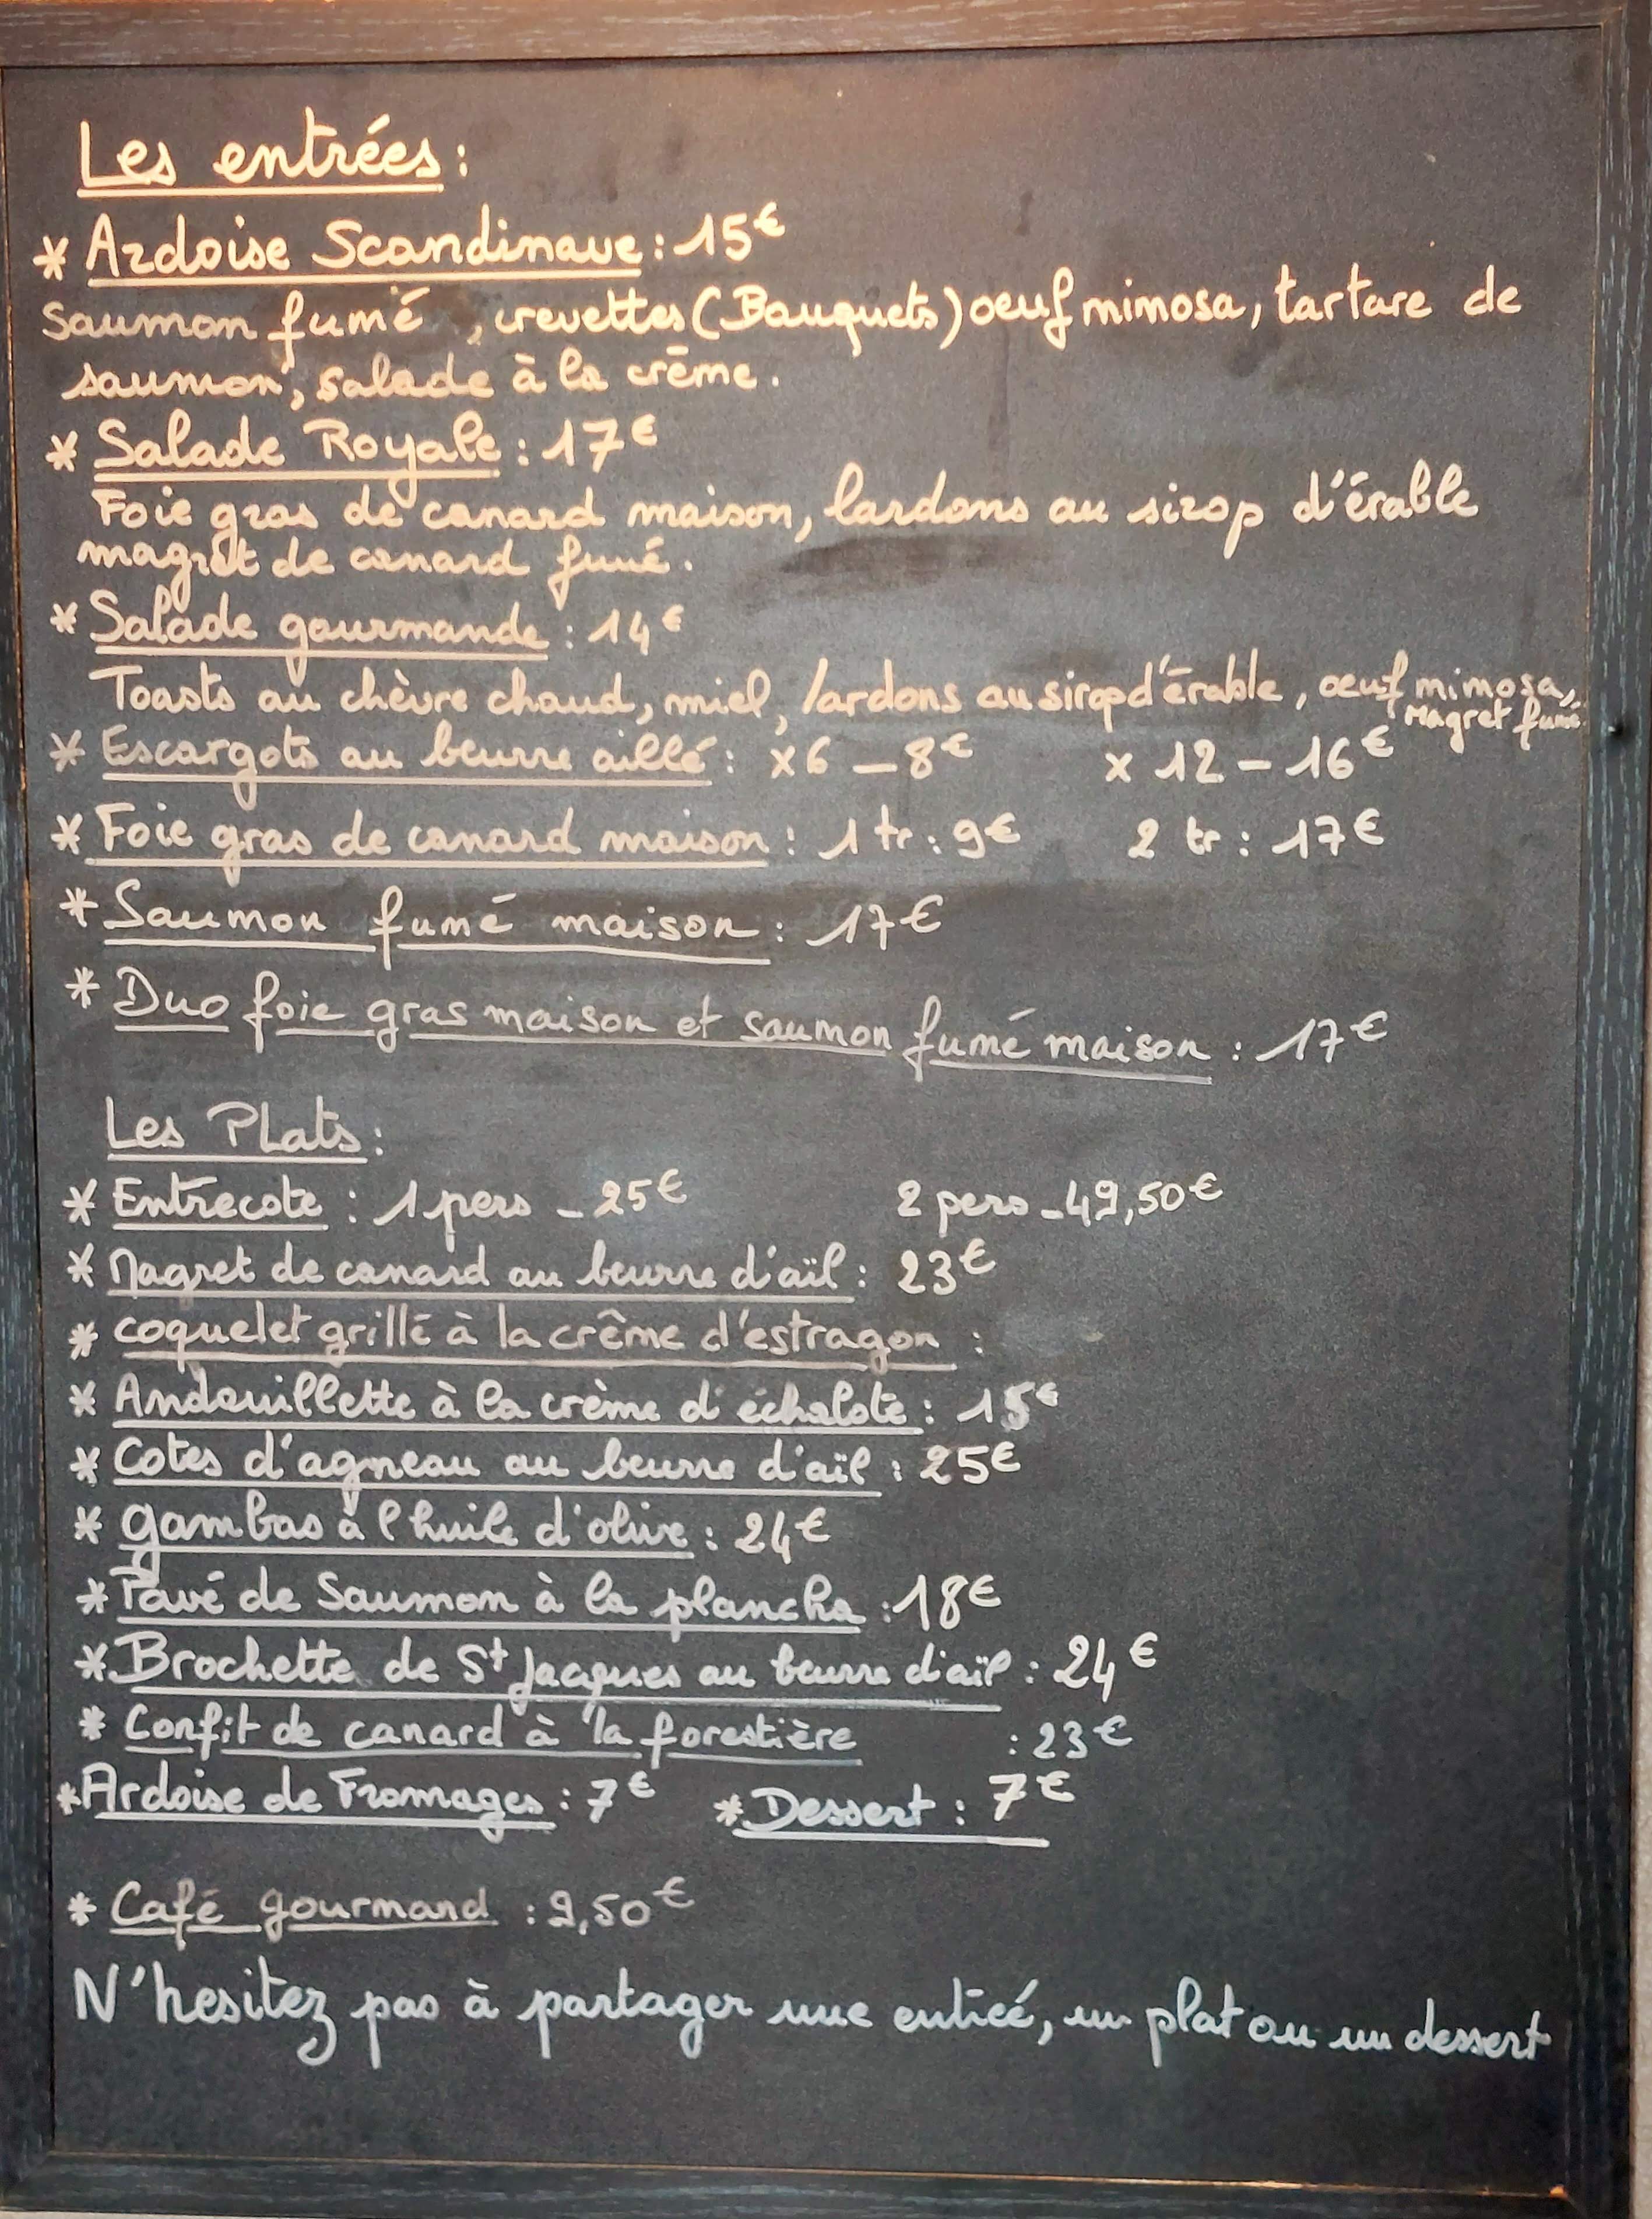 Les entrées :
* Ardoise Scandinave : 15€
Saumon fumé, crevettes (Bouquets) oeuf mimosa, tartare de
saumon, salade à la crème.
* Salade Royale : 17€
Foie gras de canard maison, lardons au sirop d'érable
magret de canard fumé.
* Salade gourmande : 14€
Toasts au chèvre chaud, miel, lardons au sirop d'érable, oeuf mimosa,
Magret fumé
* Escargots au beurre aillé : x6 – 8€ x 12 – 16€
* Foie gras de canard maison : 1 tr : 9€ 2 tr : 17€
* Saumon fumé maison : 17€
* Duo foie gras maison et saumon fumé maison : 17€
Les Plats :
* Entrecote : 1 pers – 25€ 2 pers – 49,50€
* Magret de canard au beurre d'aïl : 23€
* coquelet grillé à la crême d'estragon :
* Andouillette à la crème d'échalote : 15€
* Cotes d'agneau au beurre d'aïl : 25€
* gambas à l'huile d'olive : 24€
* Pavé de Saumon à la plancha : 18€
* Brochette de St Jacques au beurre d'aïl : 24€
* Confit de canard à la forestière : 23€
* Ardoise de Fromages : 7€ * Dessert : 7€
* Café gourmand : 9,50€
N'hesitez pas à partager une entreé, un plat ou un dessert